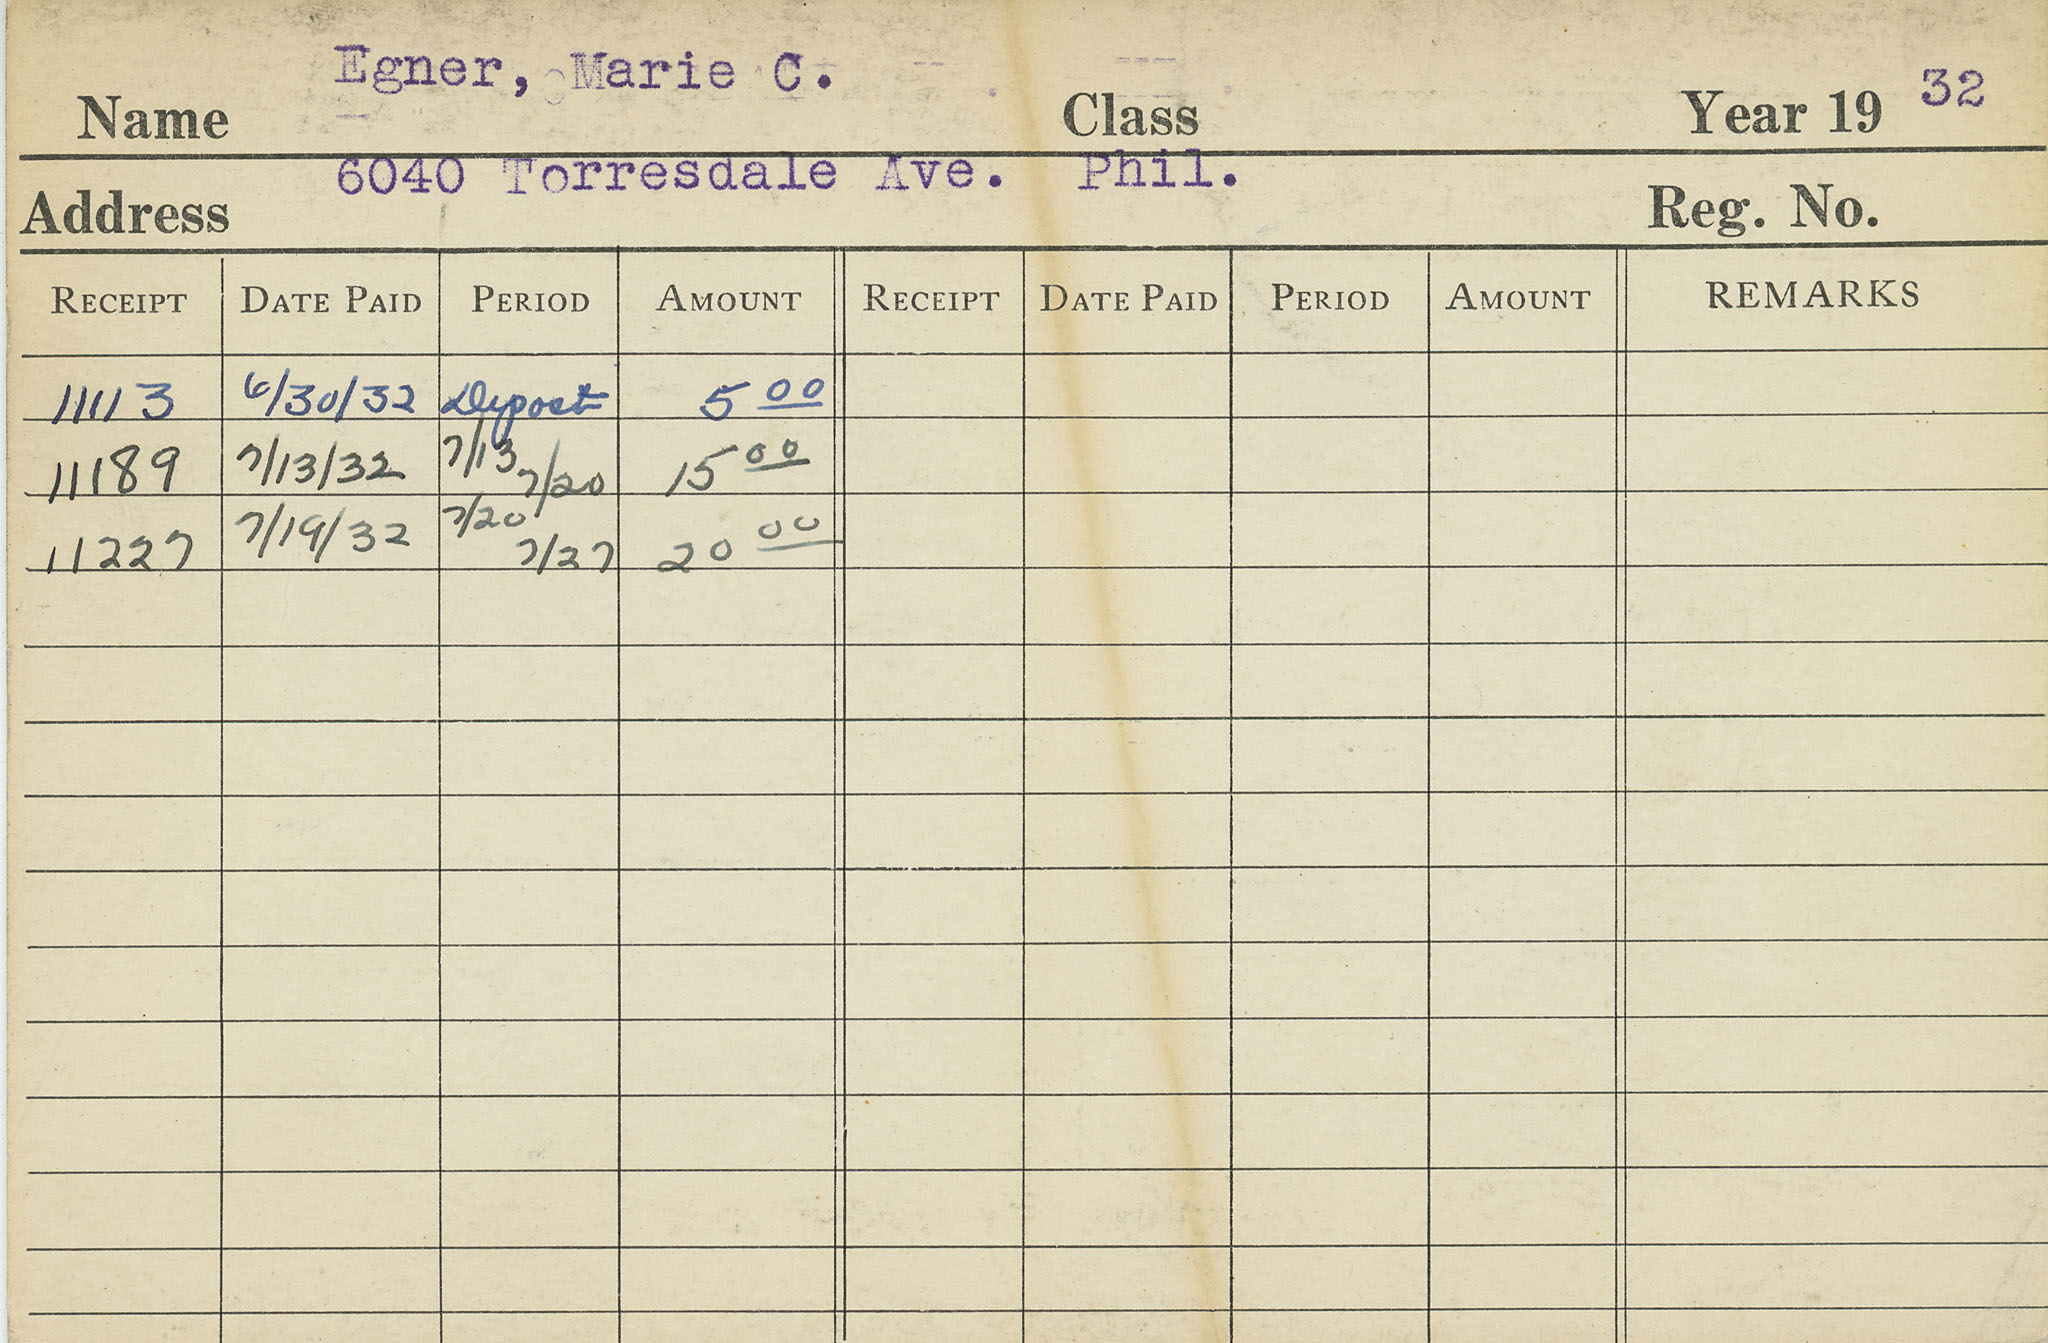 Name Egner, Marie C. Class Year 19 32
Address 6040 Torresdale Ave. Phil. Reg. No.
RECEIPT DATE PAID PERIOD AMOUNT RECEIPT DATE PAID PERIOD AMOUNT REMARKS
11113 6/30/32 Deposit 5 00
11189 7/13/32 7/13 7/20 15 00
11227 7/19/32 7/20 7/27 20 00